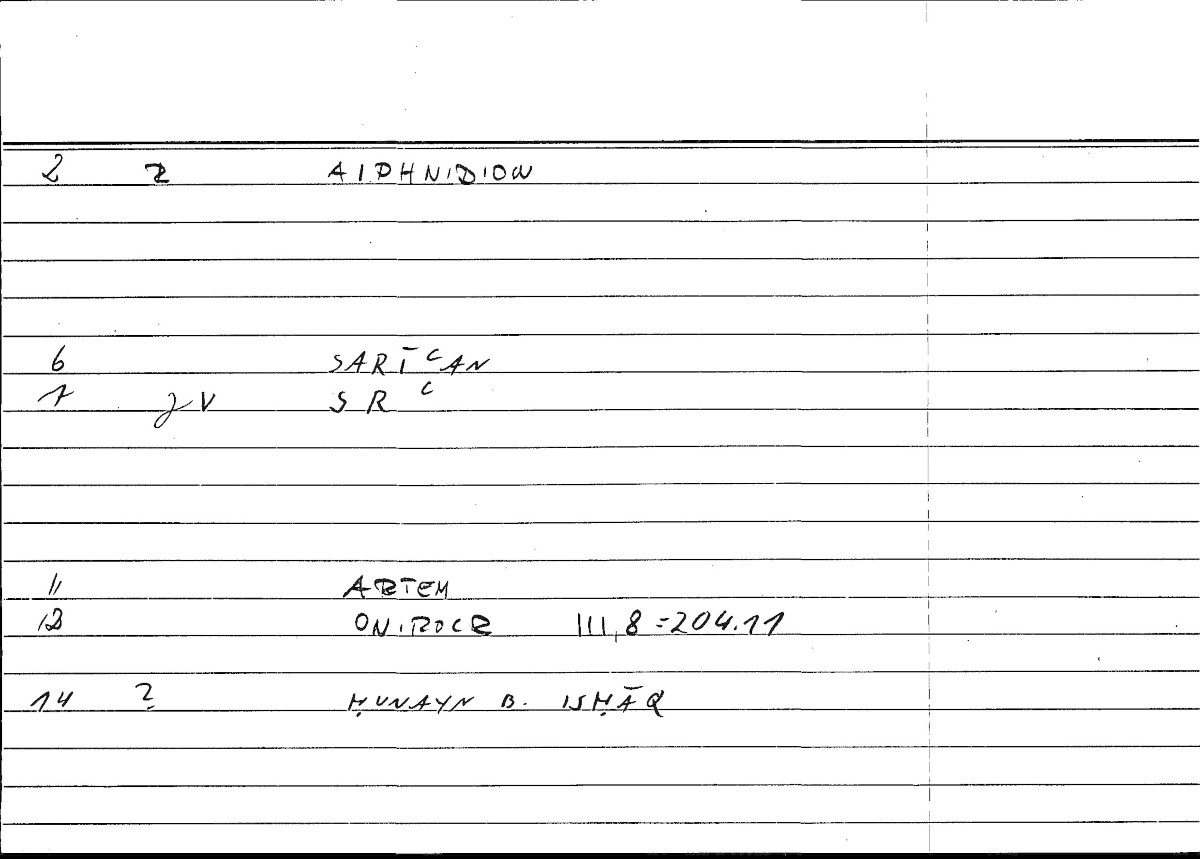 2 z AIPHNIDION
6 SARĪʿAN
7 gV SRʿ
11 ARTEM
12 ONIROCR III,8=204.11
14 ? ḤUNAYN B. ISḤĀQ